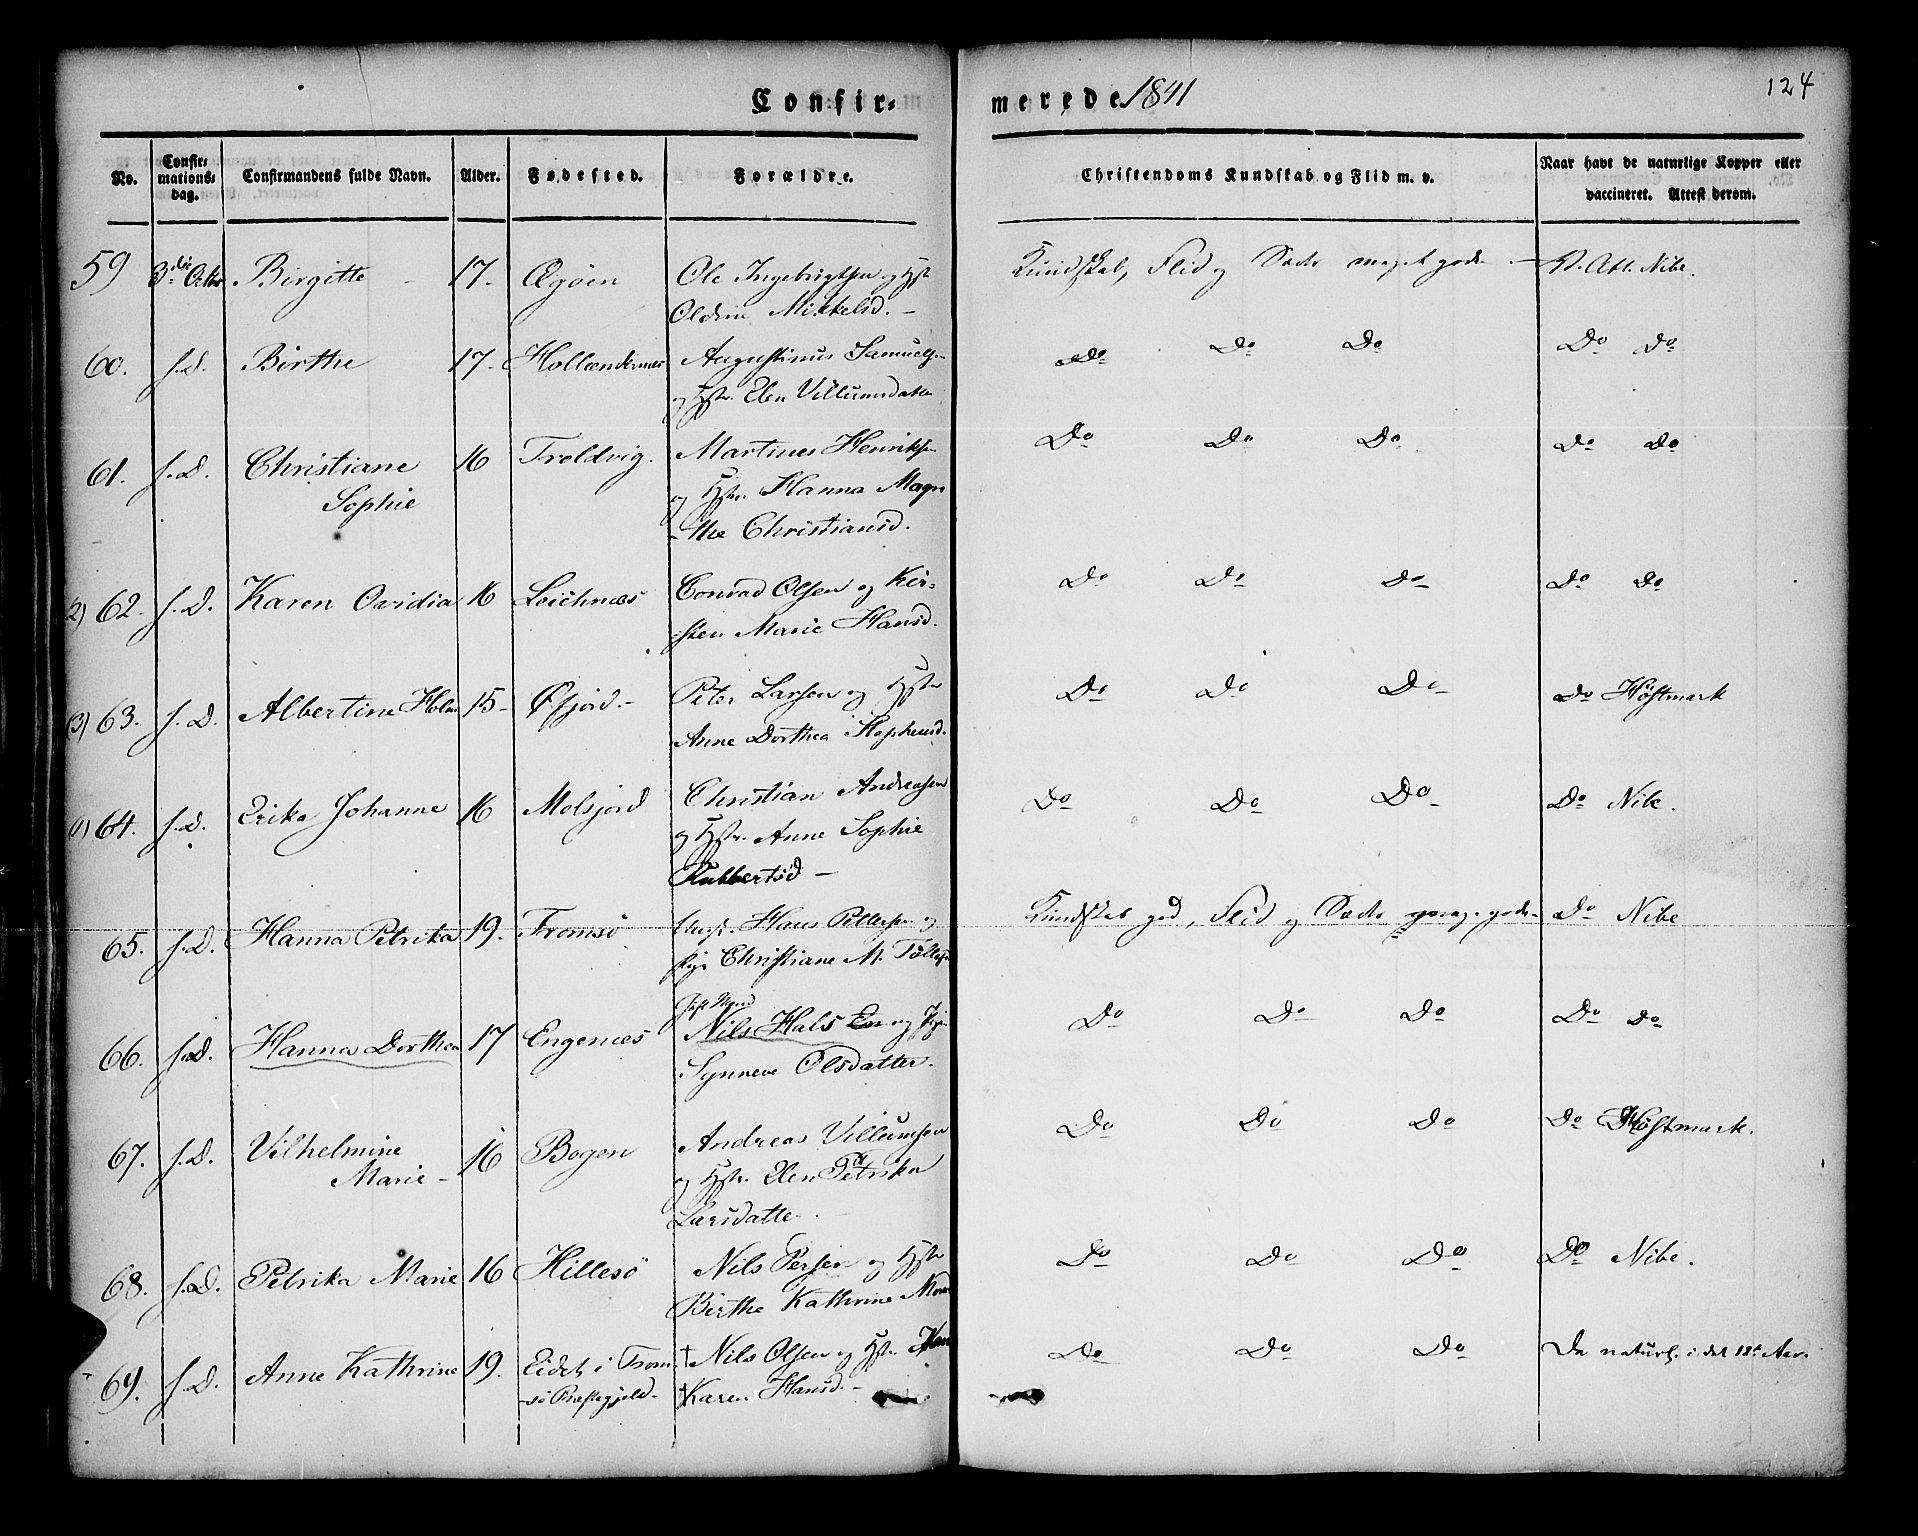 Confir=
merede 1841
124
No.
Confir=
mations=
dag.
Confirmandens fulde Navn.
Alder.
Fødested.
Forældre.
Christendoms Kundskab og Flid m. v.
Naar havt de naturlige Kopper eller
vaccineret. Attest derom.
59 3die Octbr Birgitte 17. Ægøen Ole Ingebrigtsen og Hstr
Oldine Mikkelsd.
Kundskab, Flid og Sæder meget gode V. Att. Nibe.
60. s.d. Birthe 17 Hollændernes Augustinus Samuels.
og Hstr. Elen Villumsdatter
Do Do Do Do Do
61. s.D. Christiane 16 Troldvig. Martines Henriksen
Sophie og Hstr. Hanna Magre
the Christiansd.
Do Do Do Do Do
2) 62. s.D. Karen Ovidia 16 Leichnæs Conrad Olsen og Kir=
sten Marie Hansd.
Do Do Do Do Do
3) 63. s.D. Albertine Holm 15 Øfjord Peter Larsen og Hstr
Anne Dorthea Stephensd.
Do Do Do Do Høstmark
1) 64. s.D. Erika Johanne 16 Melsjord Christian Andreasen
og Hstr. Anne Sophie
Do Do Do Do Nibe.
65. s.D. Hanna Petrika 19. Tromsø Hans Pettersen og
Christiane M. Tølles
Kundskab god, Flid og Sæder gode Do Nibe
66. s.D. Hanna Dorthea 17 Engenæs Gift Mand
Nils Hals En og Pige
Synneve Olsdatter.
Do Do Do Do Do
67. s.D. Vilhelmine 16 Bogen Andreas Villumsen
Marie og Hstr. Elen Petrika
Larsdatter
Do Do Do Do Høstmark.
68. s.D. Petrika Marie 16 Hillesö Nils Persen og Hstr
Birthe Kathrine
Do Do Do Do Nibe.
69. s.D. Anne Kathrine 19. Eidet i Trom † Nils Olsen og Hstr.
sö Præstegjeld † Karen Hansd.
Do Do Do Do naturl. i det 12te Aar.